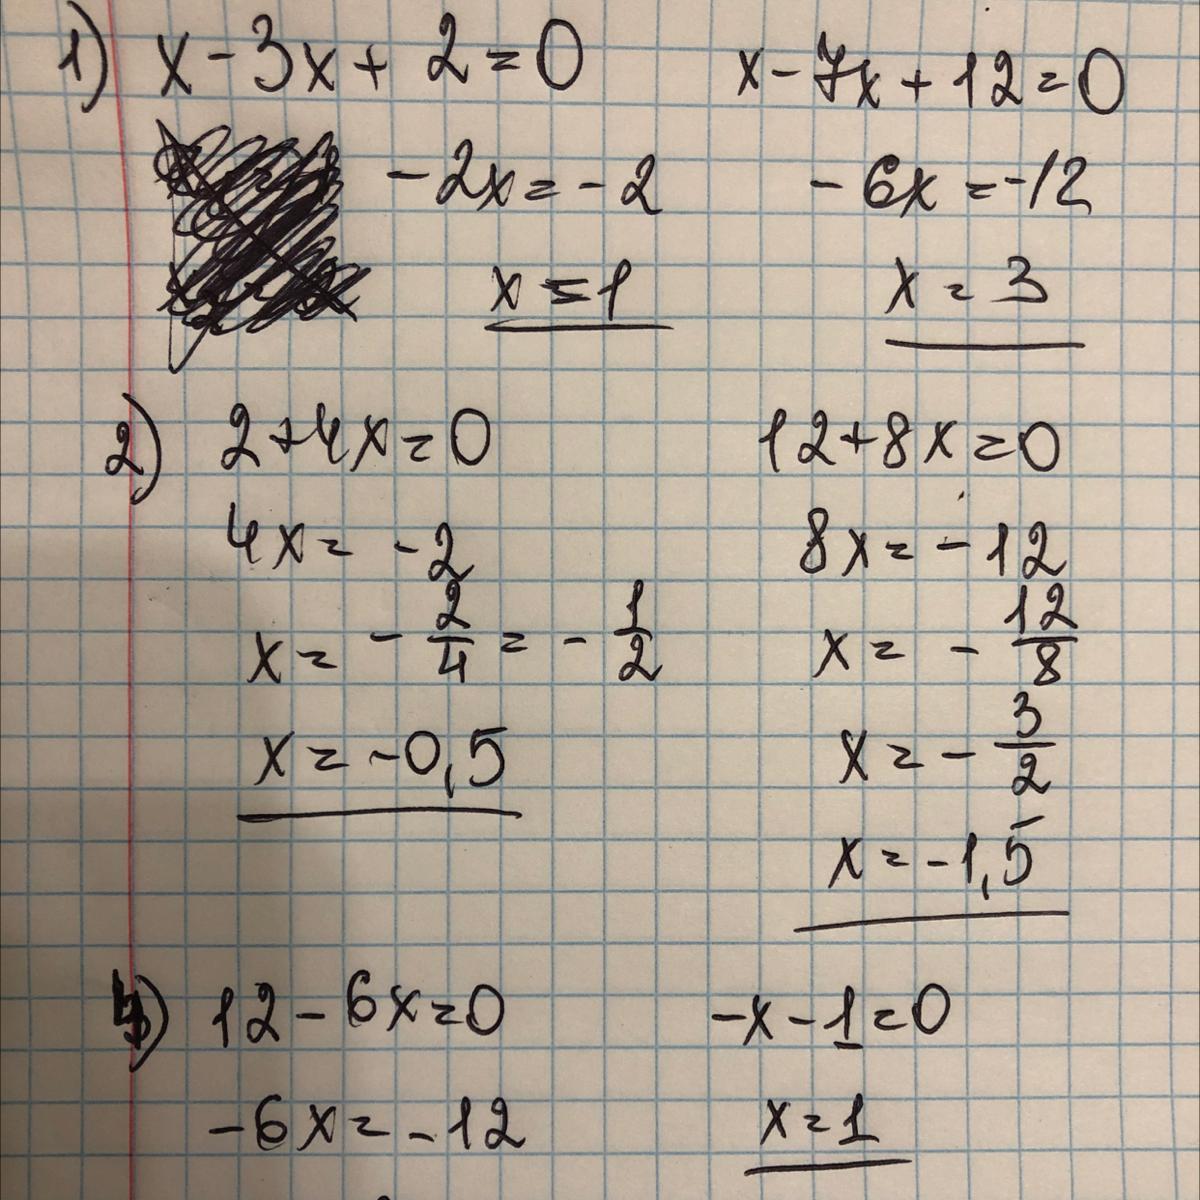 1) x - 3x + 2 = 0
-2x = -2
x = 1
x - 7x + 12 = 0
-6x = -12
x = 3
2) 2 + 4x = 0
4x = -2
x = -2/4 = -1/2
x = -0,5
12 + 8x = 0
8x = -12
x = -12/8
x = -3/2
x = -1,5
4) 12 - 6x = 0
-6x = -12
-x - 1 = 0
x = 1